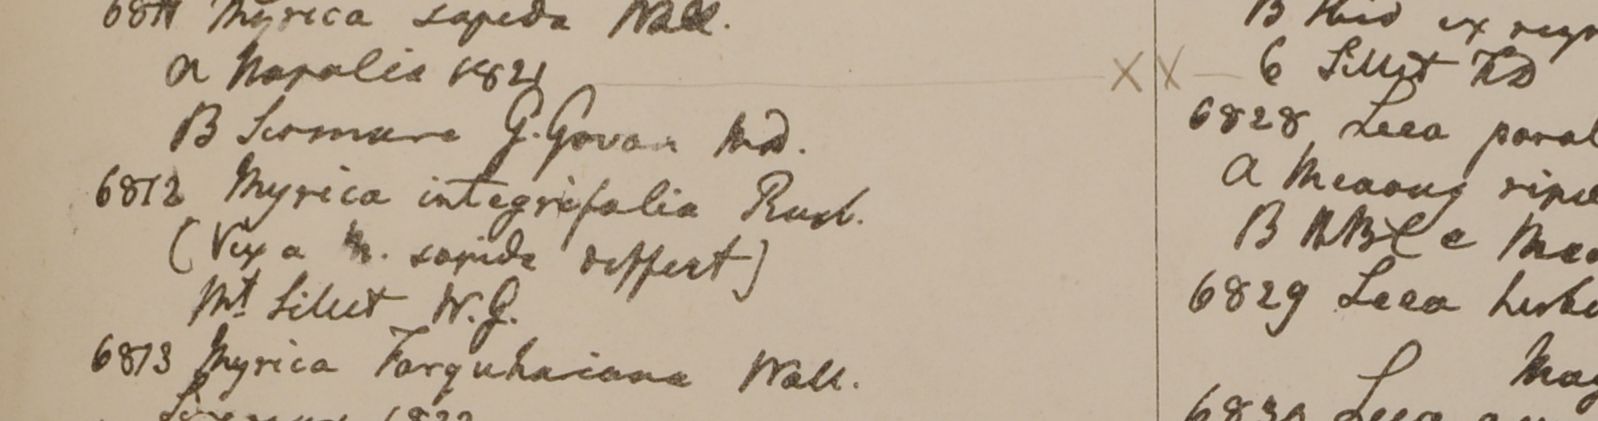 6811 Myrica sapida Wall.
a Napalia 1821
B Sirmure G. Govan Md.
6812 Myrica integrifolia Roxb.
(Vix a M. sapida differt)
Mt Sillet W. G.
6813 Myrica Farquhariana Wall.
1822
B Hid ex
6 Sillet HD
6828 Leea
a
B HBC e
6829 Leea
L
6830 Leea